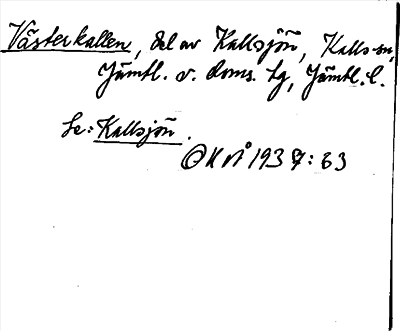 Västerkallen, del av Kallsjön, Kalls sn,
Jämtl. v. doms. tg, Jämtl. l.
Se: Kallsjön.
1937: 63